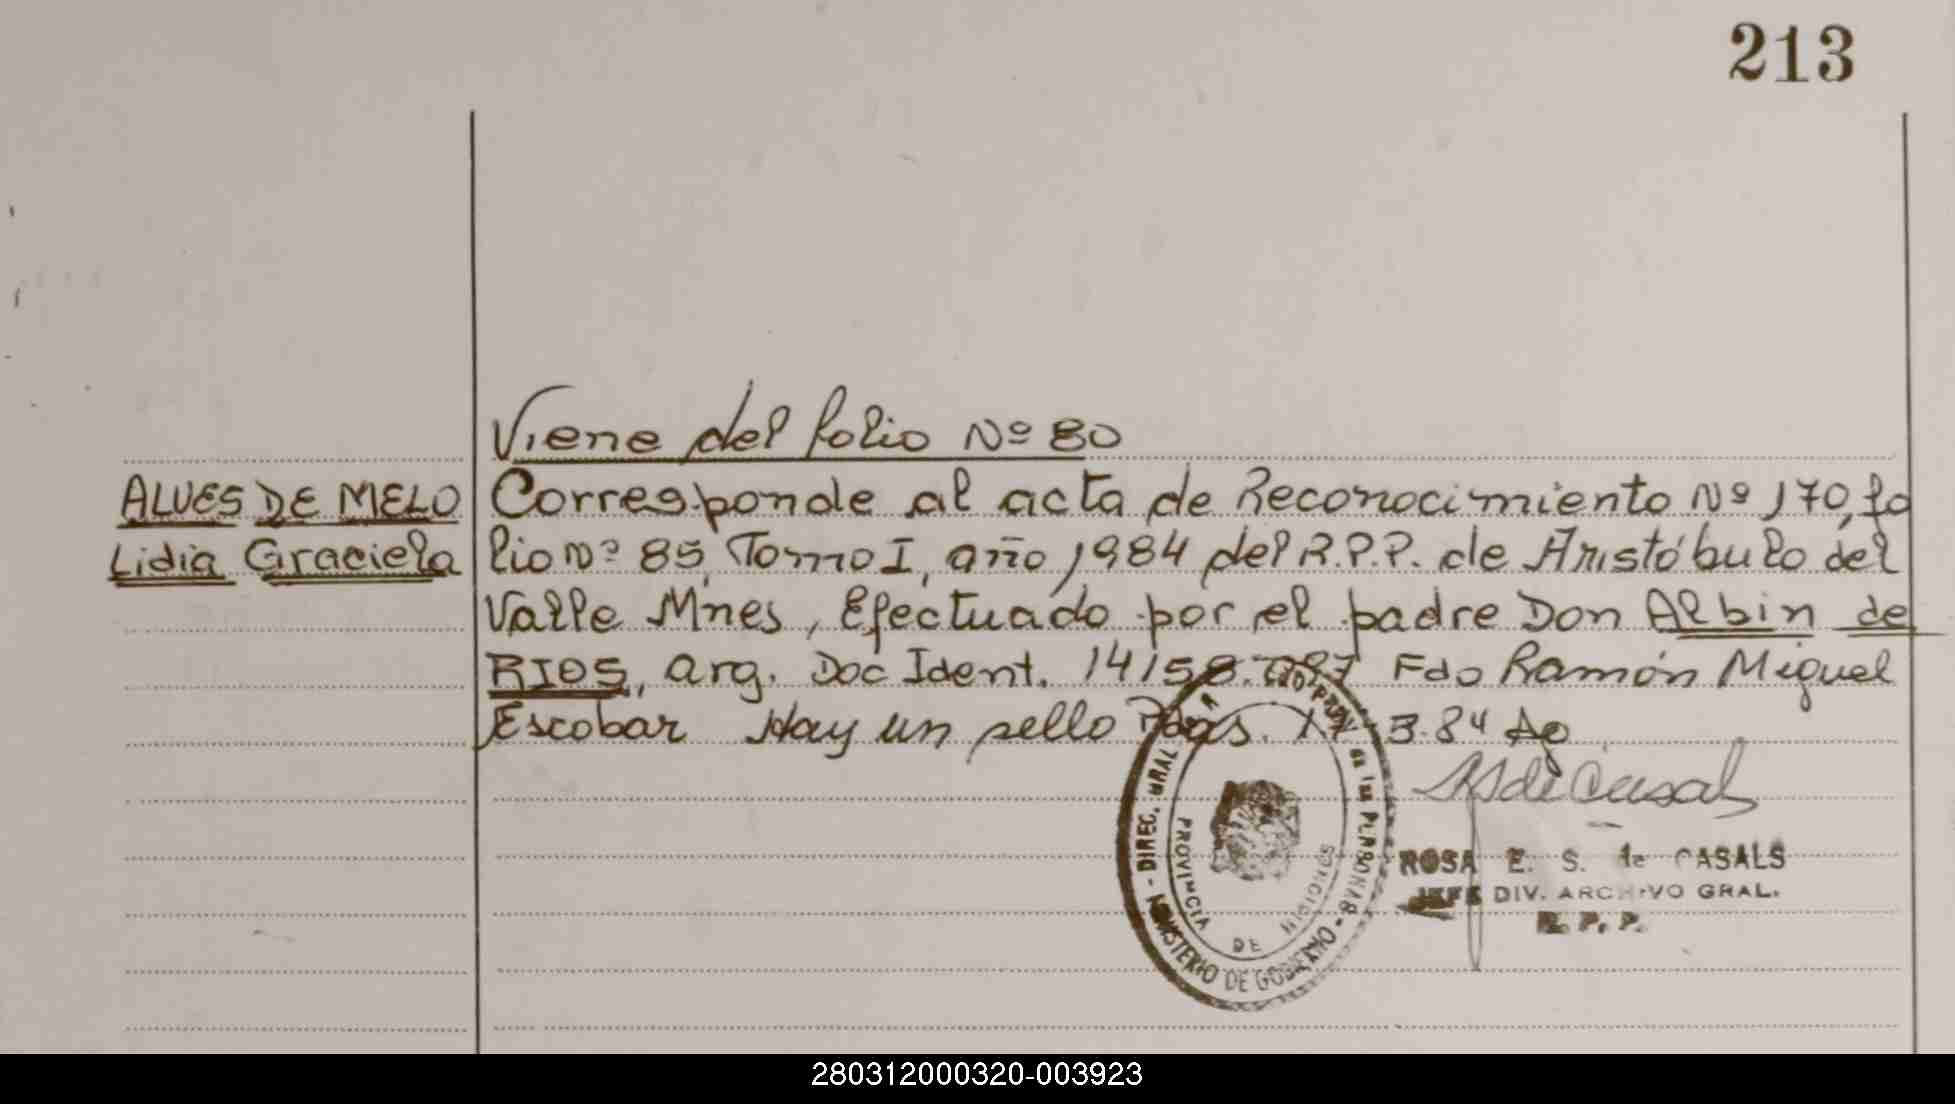 213
Viene del folio Nº 80
ALVES DE MELO
Lidia Graciela
Corresponde al acta de Reconocimiento Nº 170, fo
lio Nº 85, Tomo I, año 1984 del R.P.P. de Aristóbulo del
Valle Mnes, Efectuado por el padre Don Albin de
RIOS, arg. Doc Ident. 14158. Fdo Ramón Miguel
Escobar Hay un sello Pdas. 3.84
MINISTERIO DE GOBIERNO - DIREC. GRAL de las PERSONAS -
PROVINCIA DE MISIONES
ROSA E. S. de CASALS
JEFE DIV. ARCHIVO GRAL.
R. P. P.
280312000320-003923